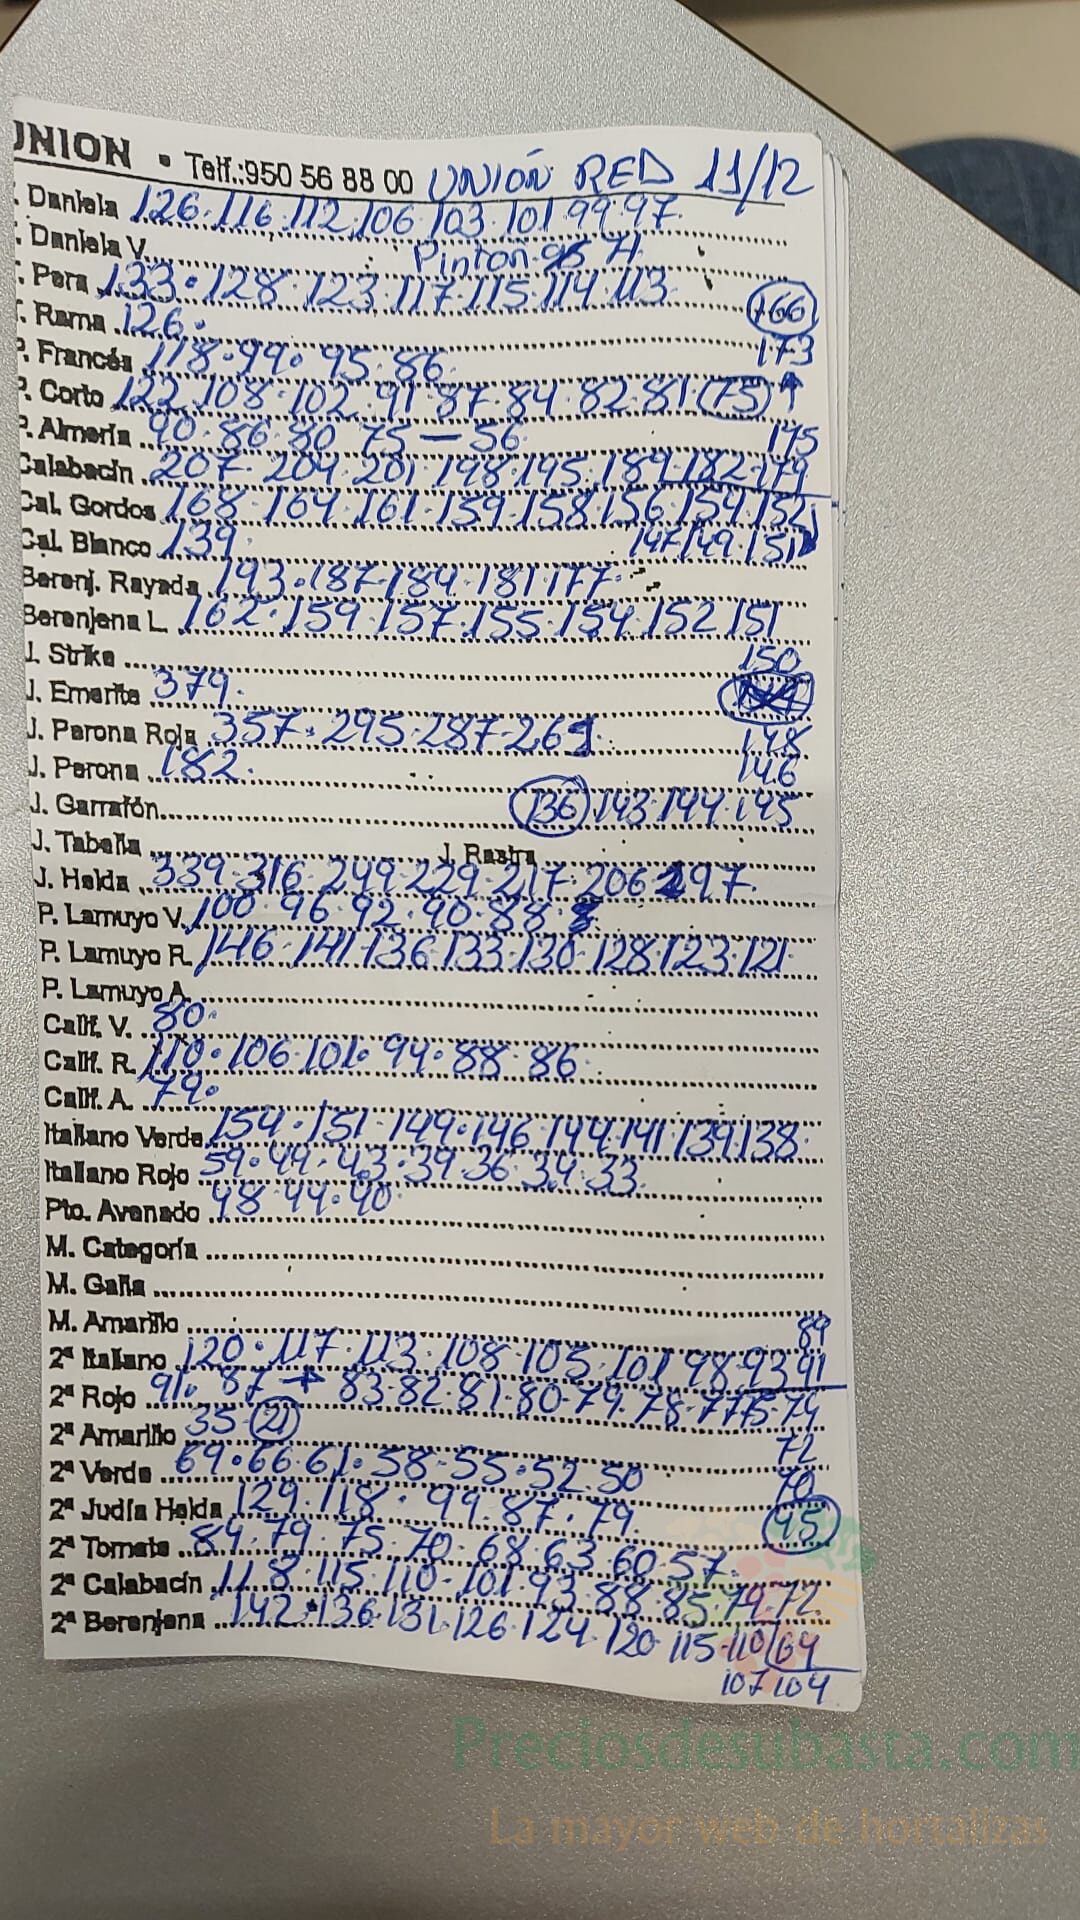 UNION • Telf.:950 56 88 00 UNIÓN RED 11/12
T. Daniela 126.116.112.106.103.101.99.97.
T. Daniela V. Pinton 71.
T. Pera 133.128.123.117.115.114.113. 166
T. Rama 126. 173
P. Francés 118.99.95.86.
P. Corto 122.108.102.91.87.84.82.81.(75)
P. Almería 90.86.80.75—56 175
Calabacín 207.204.201.198.195.189.182.179
Cal. Gordos 168.164.161.159.158.156.154.152
Cal. Blanco 139. 147.149.151
Berenj. Rayada 193.187.184.181.177.
Berenjena L. 162.159.157.155.154.152.151
J. Strike 150
J. Emerite 379.
J. Perona Roja 357.295.287.269. 148
J. Perona 182. 146
J. Garrafón 136.143.144.145
J. Tabella J. Rastra
J. Helda 339.316.249.229.217.206.197.
P. Lamuyo V. 100.96.92.90.88.
P. Lamuyo R. 146.141.136.133.130.128.123.121.
P. Lamuyo A.
Calif. V. 80.
Calif. R. 110.106.101.94.88.86.
Calif. A. 79.
Italiano Verde 154.151.149.146.144.141.139.138.
Italiano Rojo 59.49.43.39.36.34.33.
Pto. Avenado 48.44.40.
M. Categoría
M. Galia
M. Amarillo 89
2ª Italiano 120.117.113.108.105.101.98.93.91
2ª Rojo 91.87 → 83.82.81.80.79.78.77.75.74
2ª Amarillo 35.(21) 72
2ª Verde 69.66.61.58.55.52.50 70
2ª Judía Helda 129.118.99.87.79. 45
2ª Tomate 84.79.75.70.68.63.60.57.
2ª Calabacín 118.115.110.101.93.88.85.79.72.
2ª Berenjena 142.136.131.126.124.120.115.110 64
107 104
Preciosdesubasta.com
La mayor web de hortalizas